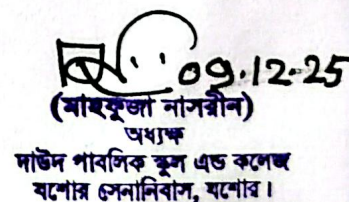 09.12.25
(মাহফুজা নাসরীন)
অধ্যক্ষ
দাউদ পাবলিক স্কুল এন্ড কলেজ
যশোর সেনানিবাস, যশোর।